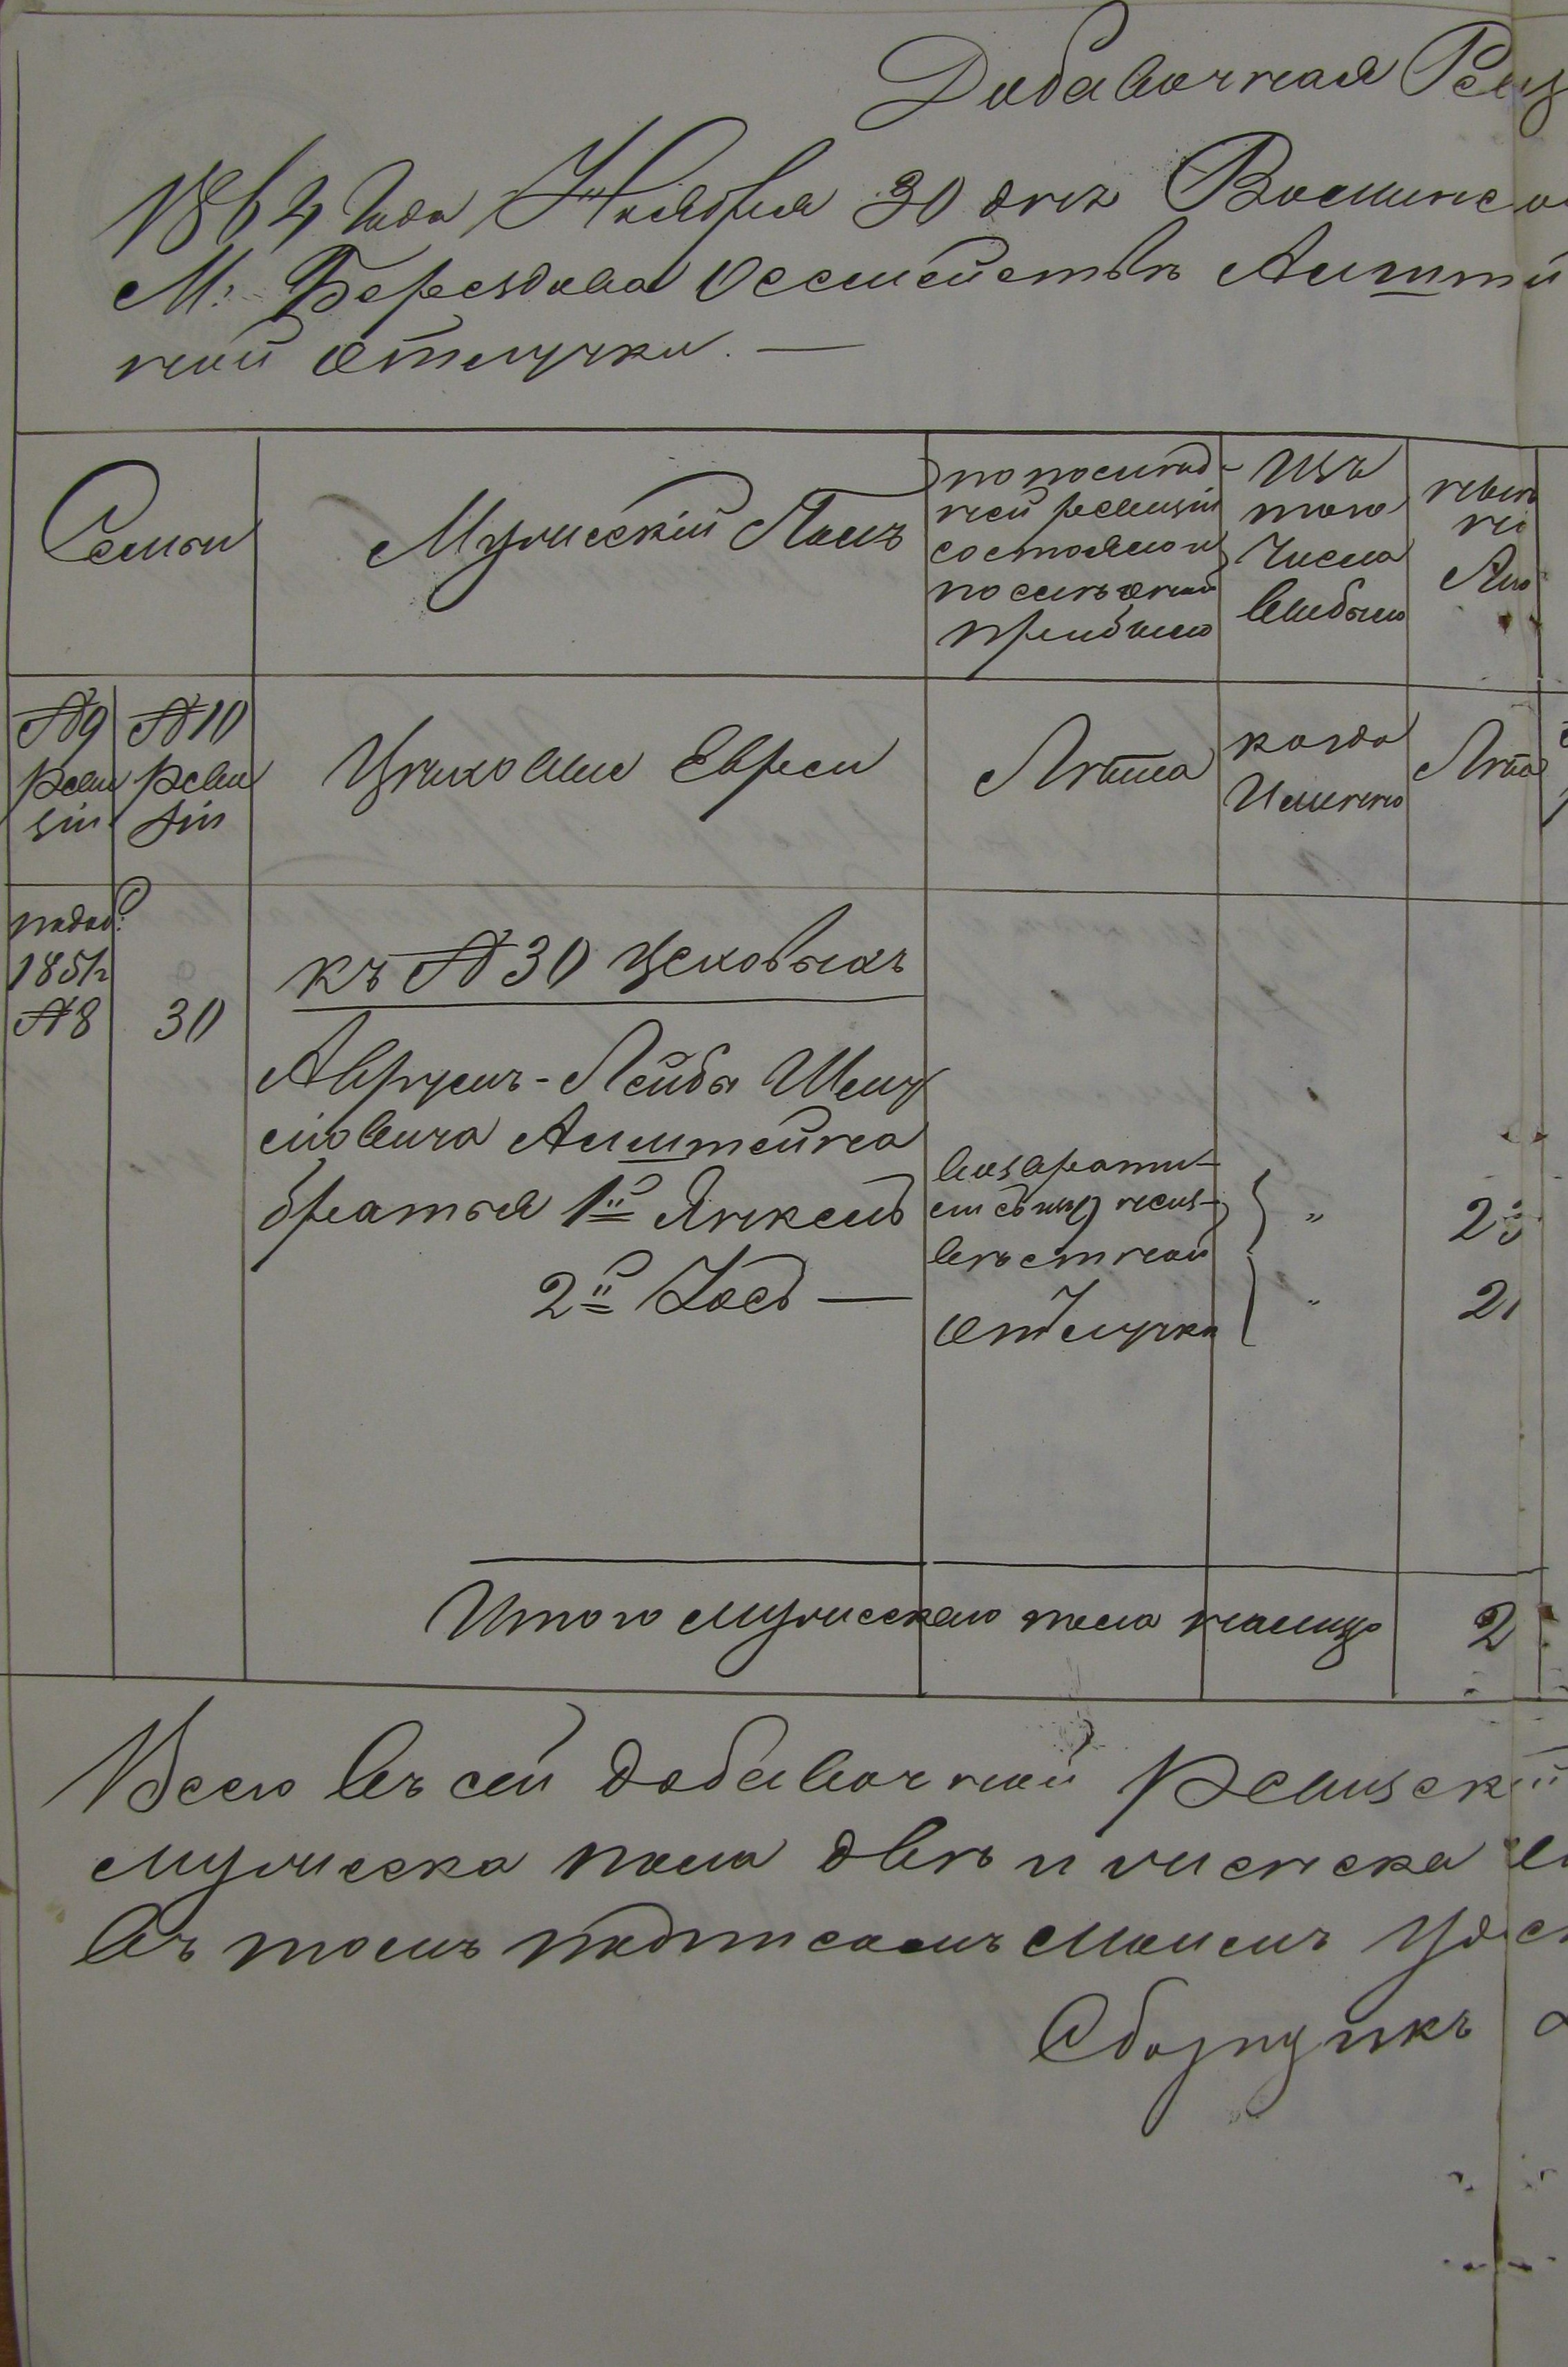 Добавочная Ревиз
1864 Года Ноября 30 дня Волынско
М. Берездова О семействѣ Аишті
ной отлучки. —
Семьи
Мужескій Полъ
по послѣд-
ней ревизіи
состояло и
послѣ оной
прибыло
Изъ
того
Числа
выбыло
нынѣ
на
Ли
№9 ревизіи
№10 ревизіи
Цѣховые Евреи
Лѣта
когда
Именно
Лѣта
подад.
1851г
№8
30
къ №30 цеховыхъ
Аврумъ-Лейбы Шму
лiовича Аиштейна
братья 1й Янкель
2й Іось —
возврати-
лись изъ неиз-
вѣстной
отлучки
"
23
"
21
Итого мужескаго пола налицо
2
Всего въ сей добавочной Ревизск
мужеска пола двѣ и женска
въ томъ подписомъ моимъ удос
Сборщикъ